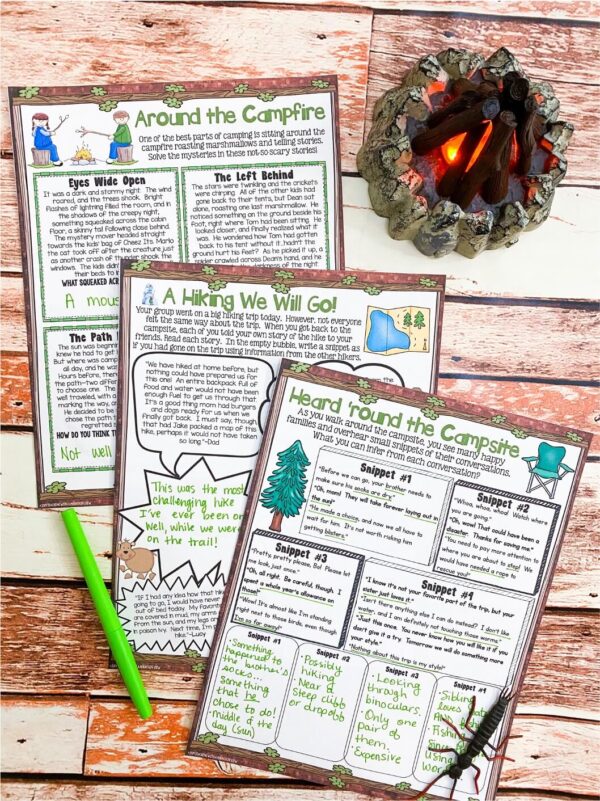 Around the Campfire
One of the best parts of camping is sitting around the
campfire roasting marshmallows and telling stories.
Solve the mysteries in these not-so-scary stories!
Eyes Wide Open
It was a dark and stormy night. The wind
roared, and the trees shook. Bright
flashes of lightning filled the room, and in
the shadows of the creepy night,
something squeaked across the cabin
floor, a skinny tail following close behind.
The mystery mover headed straight
towards the kids' bag of Cheez Its. Mario
the cat took off after the creature just
as another crash of thunder shook the
windows. The kids
their beds to
WHAT SQUEAKED
A mous
The Left Behind
The stars were twinkling and the crickets
were chirping. All of the other kids had
gone back to their tents, but Dean sat
alone, roasting one last marshmallow. He
noticed something on the ground beside his
foot, right where Tom had been sitting. He
looked closer, and finally realized what it
was. He wondered how Tom had gotten
back to his tent without it...hadn't the
ground hurt his feet? As he picked it up, a
spider crawled across Dean's hand, and he
darkness of the night
The Path
The sun was beginning
knew he had to get
But where was camp
all day, and he was
Hours before, there
the path-two different
to choose one. The
well traveled, with a
He decided to be
chose the path
regretted
HOW DO YOU THINK
Not well
A Hiking We Will Go!
Your group went on a big hiking trip today. However, not everyone
felt the same way about the trip. When you got back to the
campsite, each of you told your own story of the hike to your
friends. Read each story. In the empty bubble, write a snippet as
if you had gone on the trip using information from the other hikers.
"We have hiked at home before, but
nothing could have prepared us for
this one! An entire backpack full of
food and water would not have been
enough fuel to get us through that.
It's a good thing mom had burgers
and dogs ready for us when we
finally got back. I must say, though,
that had Jake packed a map of this
hike, perhaps it would not have taken
so long."-Dad
This was the most
challenging hike
I've ever been on
Well, while we were
on the trail!
"If I had any idea how that hike
going to go, I would have never
out of bed today. My favorite
are covered in mud, my arms
from the sun, and my legs are
in poison ivy. Next time, I'm
hike."-Lucy
Heard 'round the Campsite
As you walk around the campsite, you see many happy
families and overhear small snippets of their conversations.
What you can infer from each conversation?
Snippet #1
"Before we can go, your brother needs to
make sure his socks are dry."
"Oh, man! They will take forever laying out in
the sun!"
"He made a choice, and now we all have to
wait for him. It's not worth risking him
getting blisters."
Snippet #2
"Whoa, whoa, whoa! Watch where
you are going."
"Oh, wow! That could have been a
disaster. Thanks for saving me."
"You need to pay more attention to
where you are about to step! We
would have needed a rope to
rescue you!"
Snippet #3
"Pretty, pretty please, Bo! Please let
me look, just once."
"Oh, all right. Be careful, though. I
spent a whole year's allowance on
those!"
"Wow! It's almost like I'm standing
right next to those birds, even though
I'm so far away!"
Snippet #4
"I know it's not your favorite part of the trip, but your
sister just loves it."
"Isn't there anything else I can do instead? I don't like
water, and I am definitely not touching those worms."
"Just this once. You never know how you will like it if you
don't give it a try. Tomorrow we will do something more
your style."
"Nothing about this trip is my style!"
Snippet #1
•Something
happened to
the brother's
socks...
something
that he
chose to do!
•middle of the
day (sun)
Snippet #2
•Possibly
hiking
•Near a
steep cliff
or dropoff
Snippet #3
•Looking
through
binoculars.
•Only one
pair of
them.
•Expensive
Snippet #4
•Sibling
loves
•Fishing